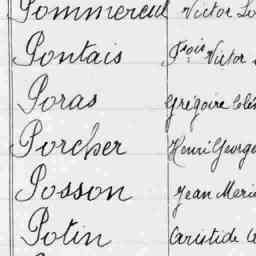 Pommereul Victor
Pontais Fçois Victor
Poras Grégoire
Porcher Henri George
Posson Jean Marie
Potin Aristide